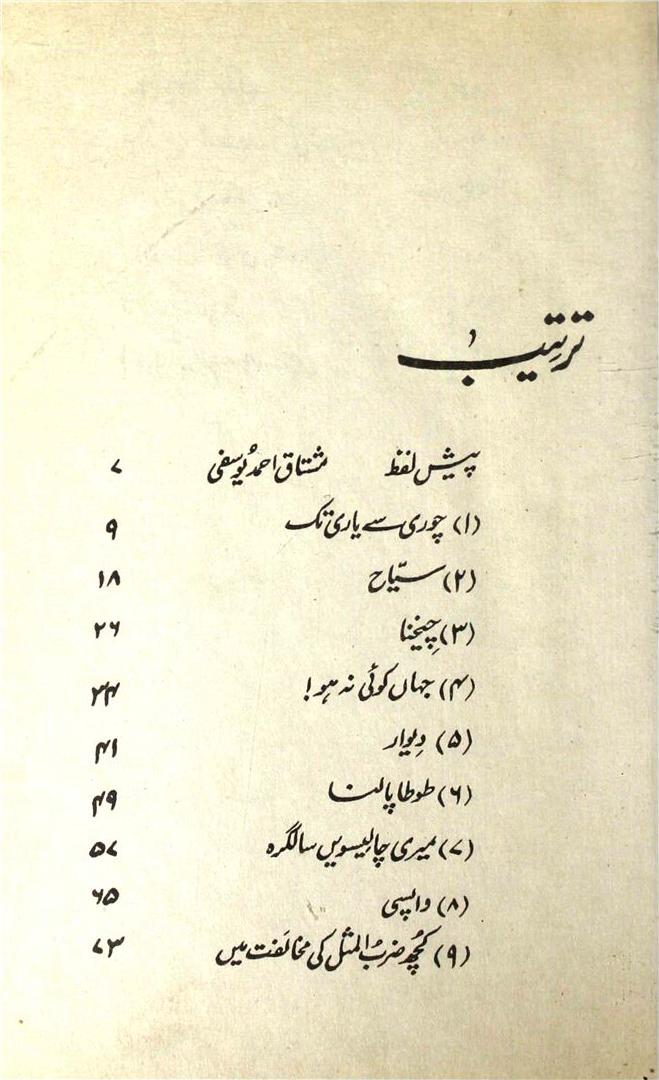 ترتیب
پیش لفظ مشتاق احمد یوسفی ۷
(۱) چوری سے یاری تک ۹
(۲) سیّاح ۱۸
(۳) چیخنا ۲۶
(۴) جہاں کوئی نہ ہو! ۳۴
(۵) دیوار ۴۱
(۶) طوطا پالنا ۴۹
(۷) میری چالیسویں سالگرہ ۵۷
(۸) واپسی ۶۵
(۹) کچُھ ضربُ المثل کی مخالفت میں ۷۳